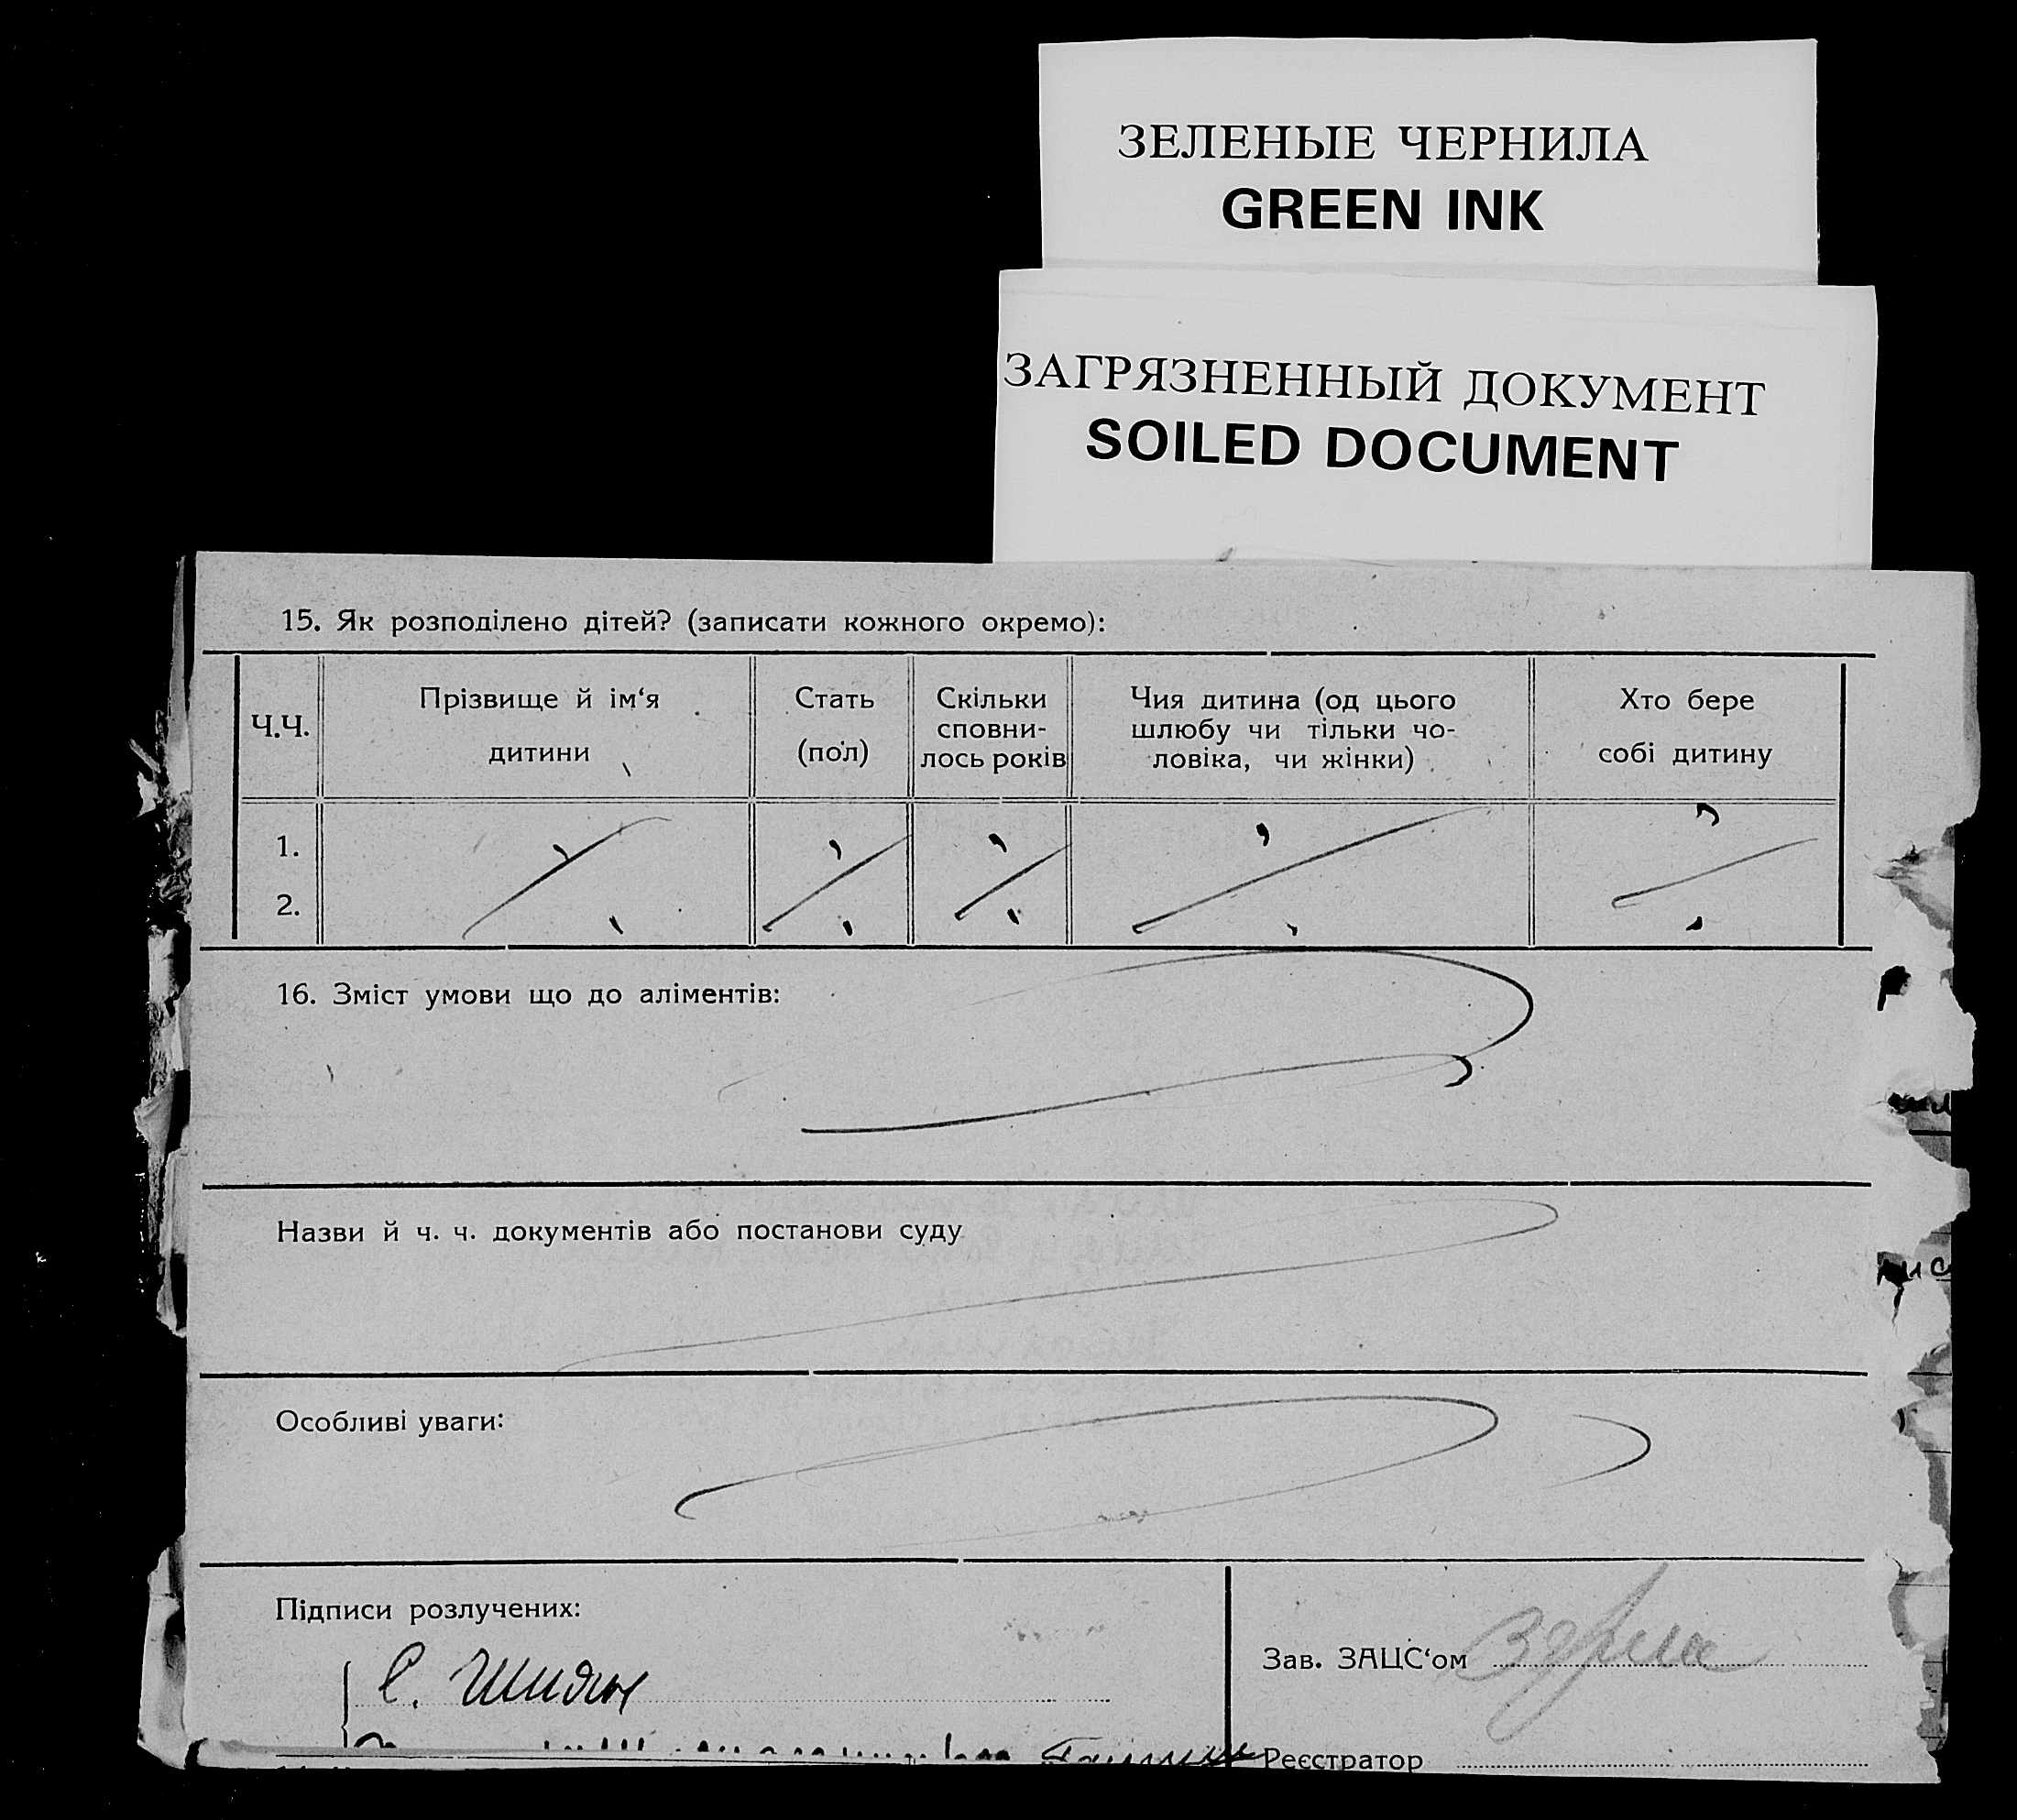 ЗЕЛЕНЫЕ ЧЕРНИЛА
GREEN INK
ЗАГРЯЗНЕННЫЙ ДОКУМЕНТ
SOILED DOCUMENT
15. Як розподілено дітей? (записати кожного окремо):
Ч.Ч.
Прізвище й ім‘я
дитини
Стать
(пол)
Скільки
сповни-
лось років
Чия дитина (од цього
шлюбу чи тільки чо-
ловіка, чи жінки)
Хто бере
собі дитину
1.
2.
16. Зміст умови що до аліментів:
Назви й ч. ч. документів або постанови суду
Особливі уваги:
Підписи розлучених:
С.
Зав. ЗАЦС‘ом
Реєстратор